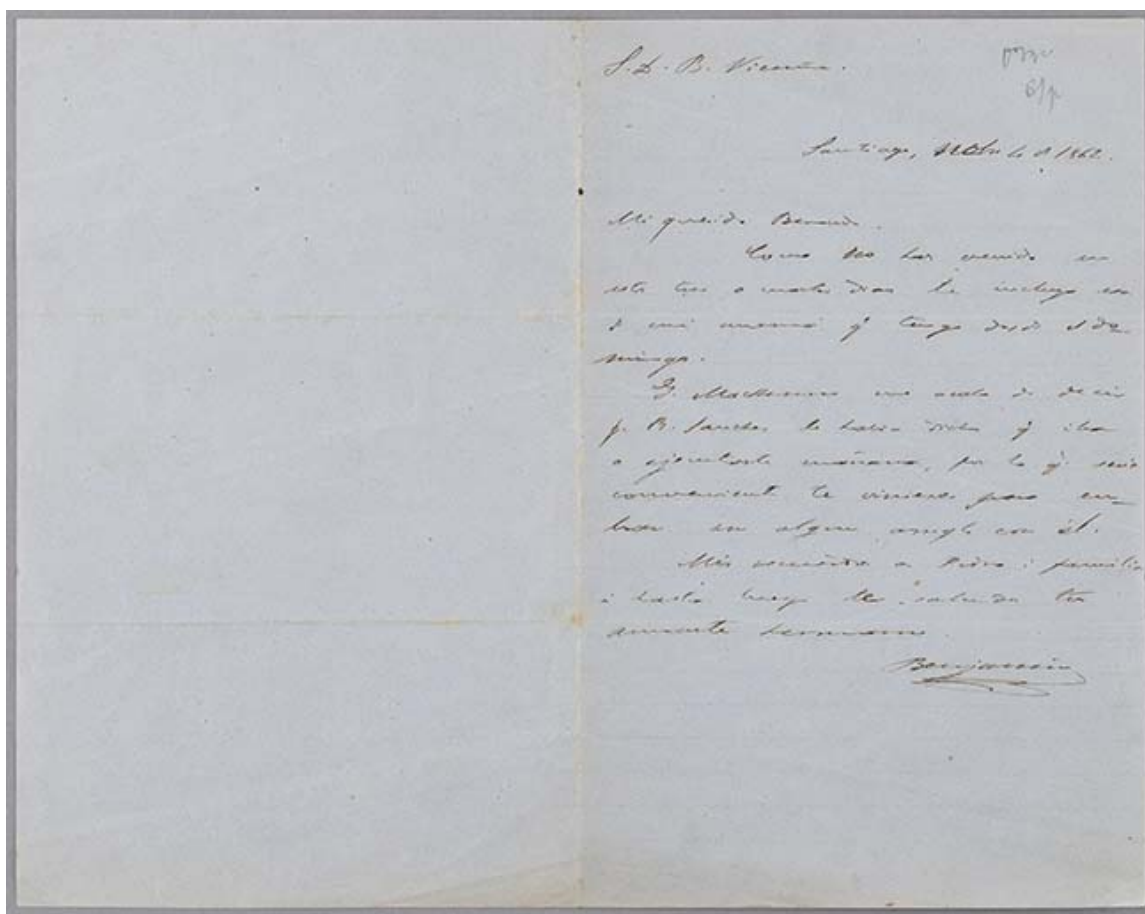 S. D. B. Vicuña.
Santiago, de 1862.
Mi querido Bernardo.
Como no has venido en
este tres o cuatro dias te incluyo
de mi mamá q. tengo desde el do-
mingo.
MacKenna me acaba de decir
q. B. Sanchez le habia dicho q. iba
a ejecutarte mañana, por lo q. seria
conveniente te vinieras para en-
trar en algun arreglo con él.
Mis recuerdos a Pedro i familia
i hasta luego te saluda tu
amante hermano
Benjamin